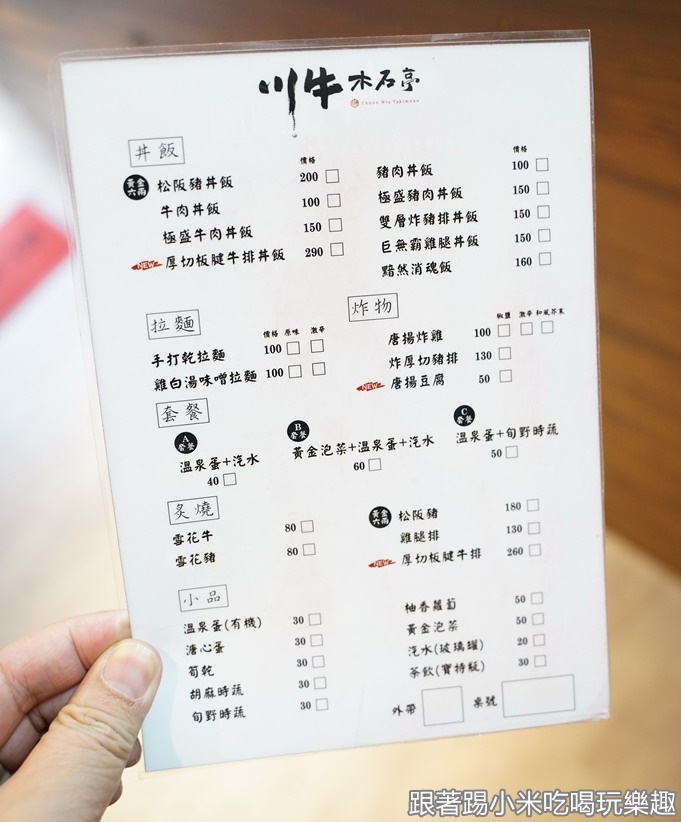 川牛 木石亭
Chuan Niu Yakimono
丼飯
價格
黃金六兩 松阪豬丼飯 200
牛肉丼飯 100
極盛牛肉丼飯 150
NEW 厚切板腱牛排丼飯 290
價格
豬肉丼飯 100
極盛豬肉丼飯 150
雙層炸豬排丼飯 150
巨無霸雞腿丼飯 150
黯然消魂飯 160
拉麵
價格 原味 激辛
手打乾拉麵 100
雞白湯味噌拉麵 100
炸物
椒鹽 激辛 和風芥末
唐揚炸雞 100
炸厚切豬排 130
NEW 唐揚豆腐 50
套餐
A套餐
溫泉蛋+汽水
40
B套餐
黃金泡菜+溫泉蛋+汽水
60
C套餐
溫泉蛋+旬野時蔬
50
炙燒
雪花牛 80
雪花豬 80
黃金六兩 松阪豬 180
雞腿排 130
NEW 厚切板腱牛排 260
小品
溫泉蛋(有機) 30
溏心蛋 30
筍乾 30
胡麻時蔬 30
旬野時蔬 30
柚香蘿蔔 50
黃金泡菜 50
汽水(玻璃罐) 20
茶飲(寶特瓶) 30
外帶 桌號
跟著踢小米吃喝玩樂趣